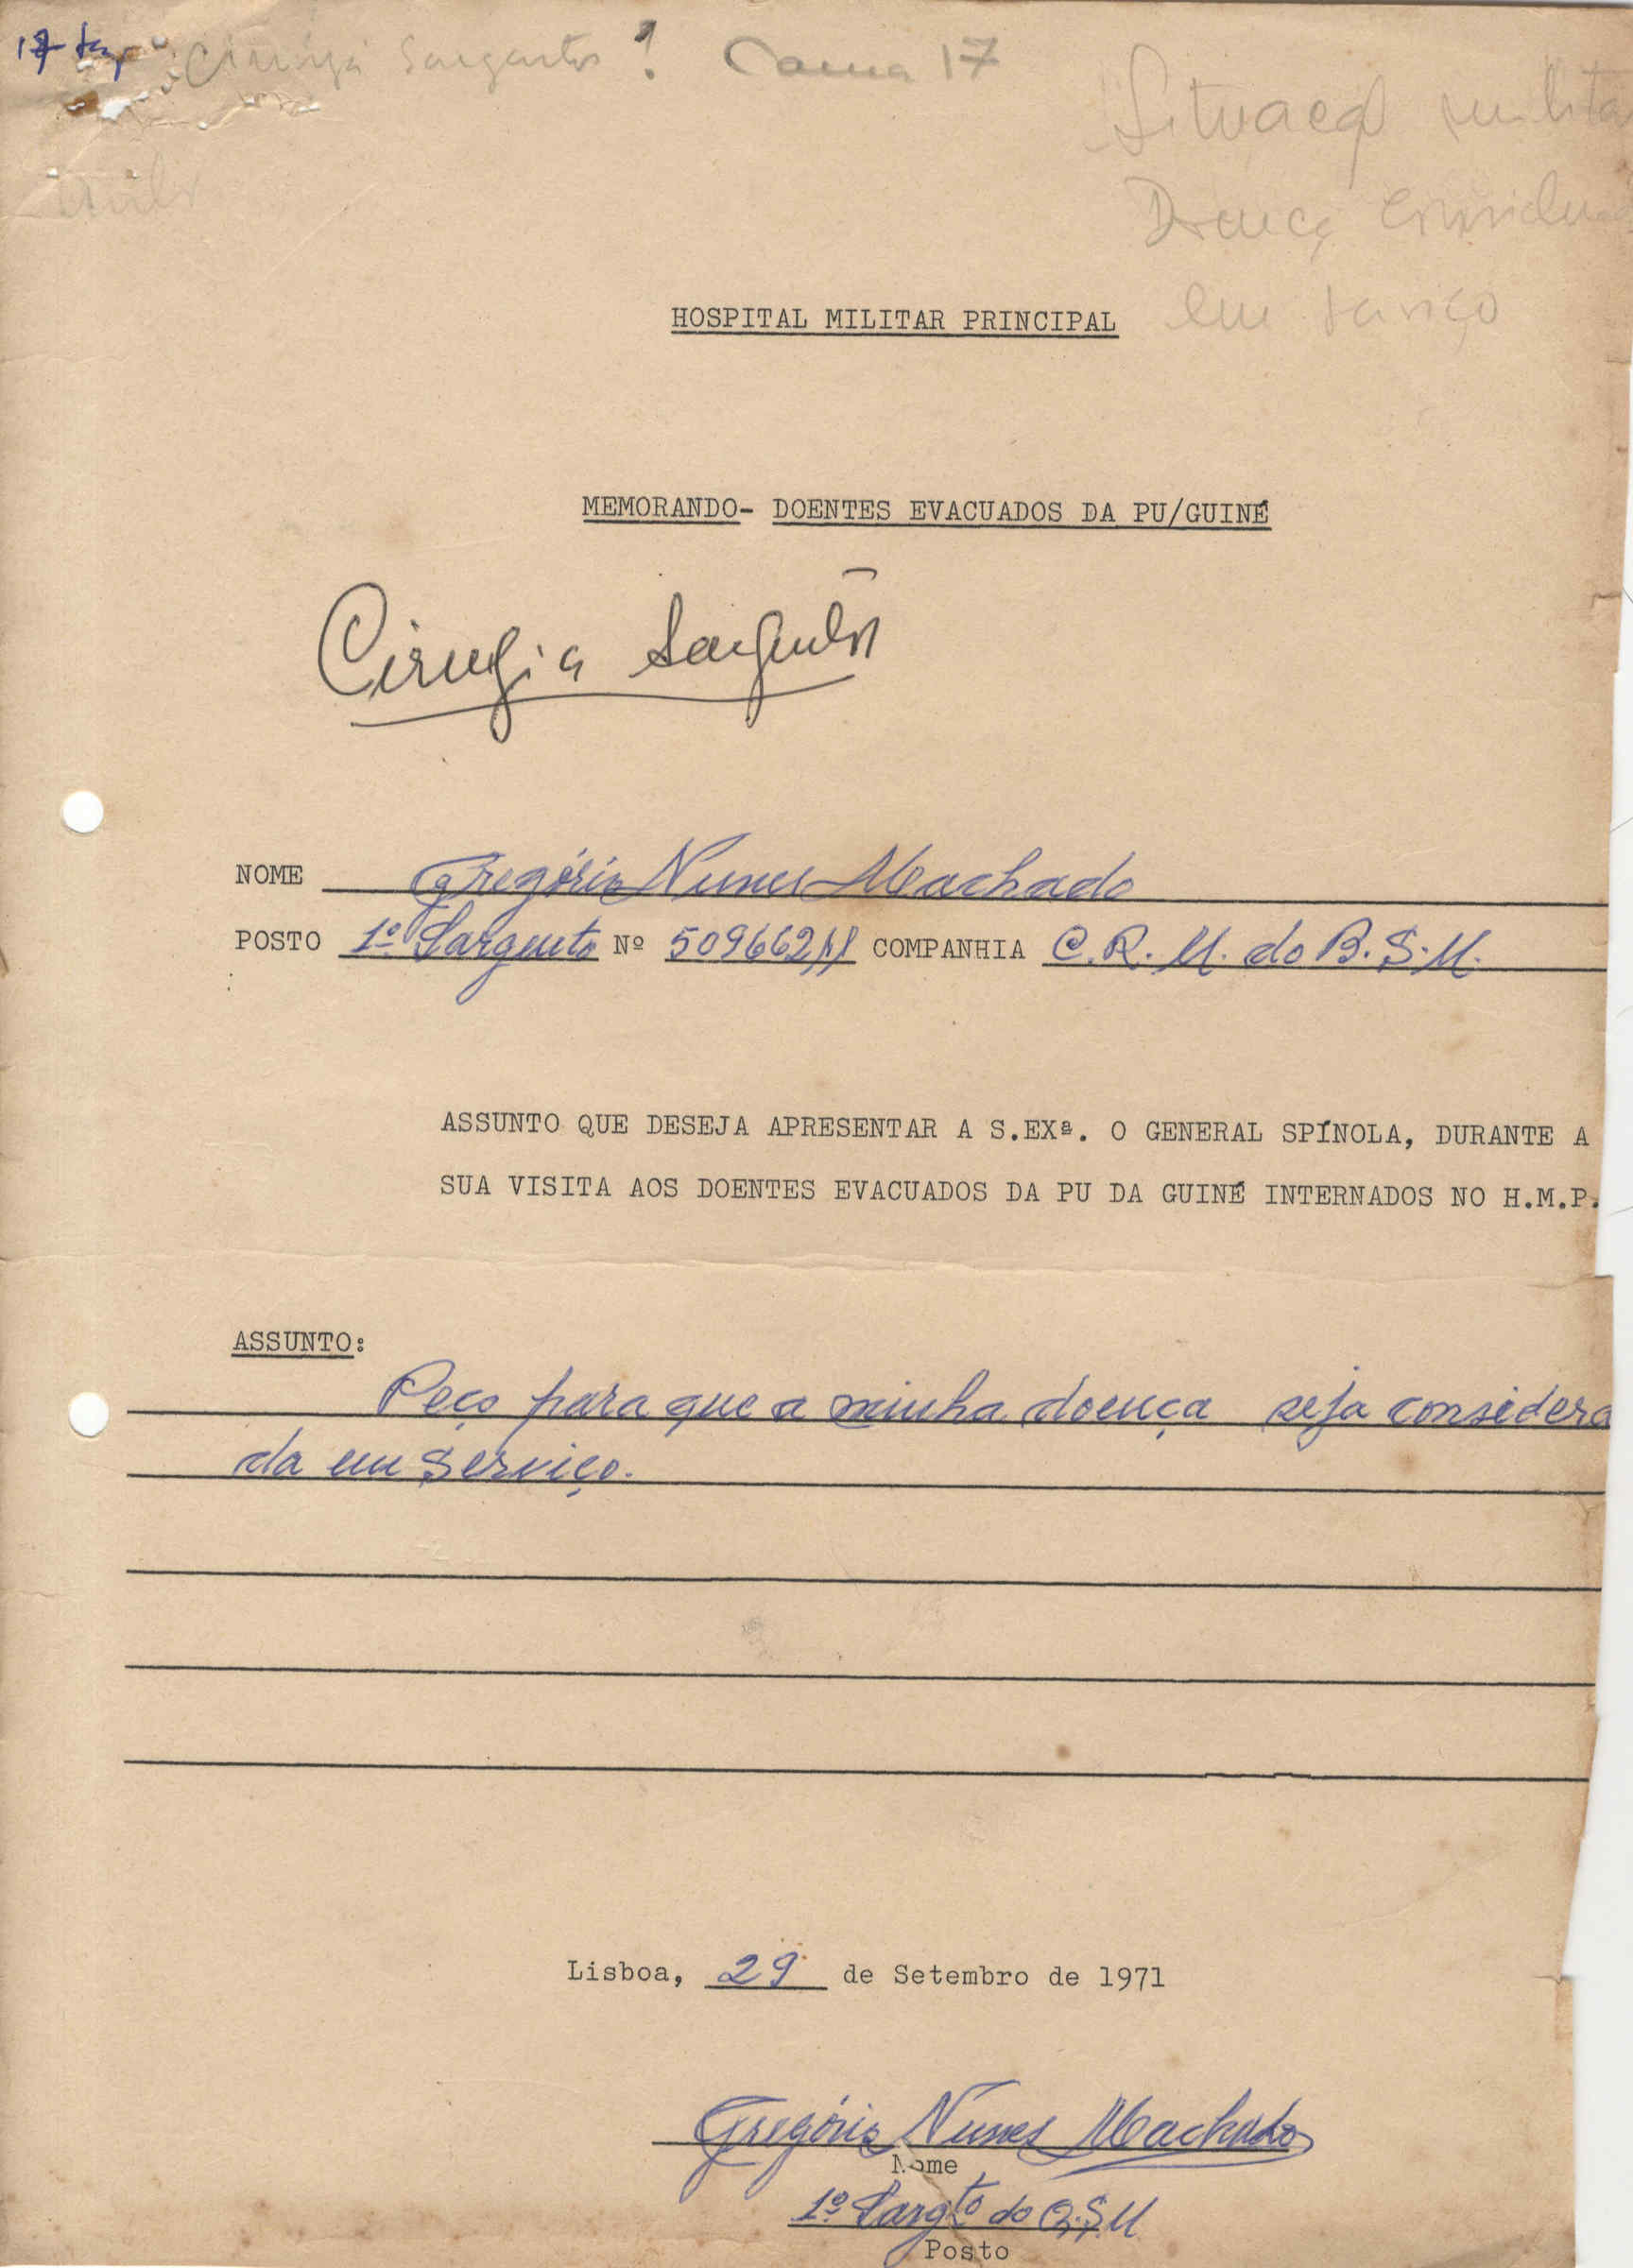 17 Cirurgia Sargentos 1 Cama 17
Situação milita
Doença considerad
em serviço
HOSPITAL MILITAR PRINCIPAL
MEMORANDO- DOENTES EVACUADOS DA PU/GUINÉ
Cirugia Sargentos
NOME Gregório Nunes Machado
POSTO 1º Sargento Nº 50966211 COMPANHIA C.R.M. do B.S.M.
ASSUNTO QUE DESEJA APRESENTAR A S.EXª. O GENERAL SPÍNOLA, DURANTE A
SUA VISITA AOS DOENTES EVACUADOS DA PU DA GUINÉ INTERNADOS NO H.M.P.
ASSUNTO:
Peço para que a minha doença seja considera
da em serviço.
Lisboa, 29 de Setembro de 1971
Gregório Nunes Machado
Nome
1º Sargto do Q.S.M
Posto